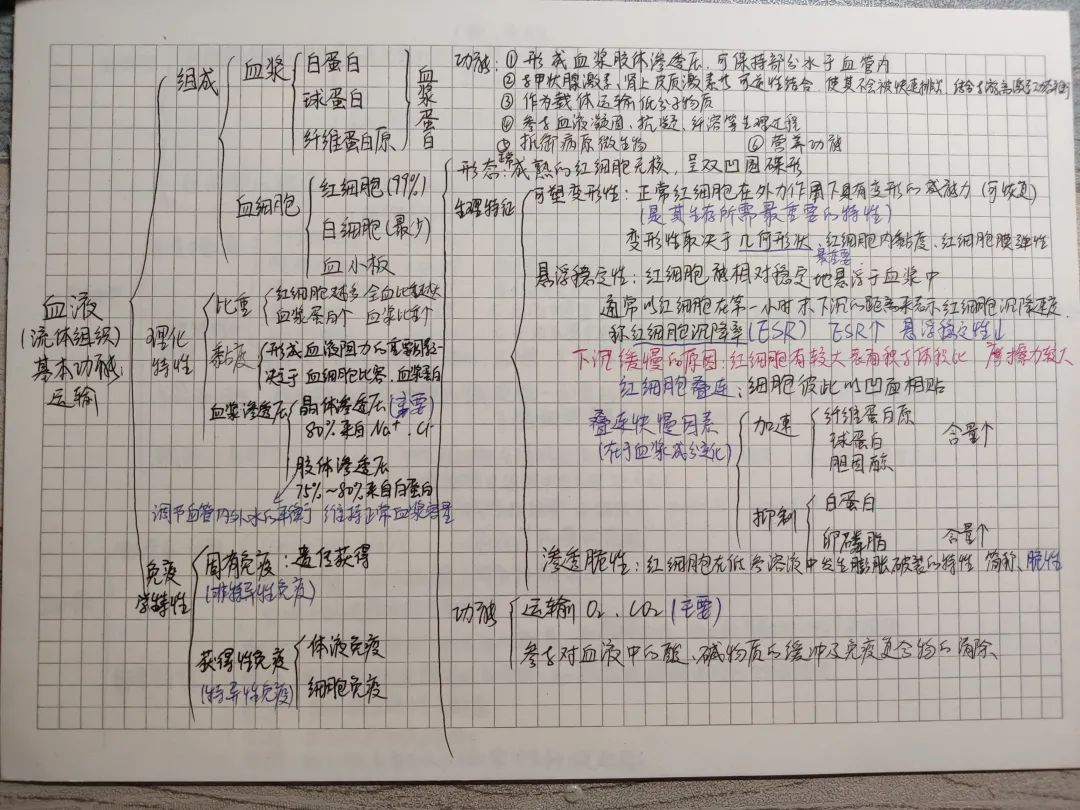 血液
(流体组织)
基本功能:
运输
组成
血浆
白蛋白
球蛋白
纤维蛋白原
血浆蛋白
血细胞
红细胞(99%)
白细胞(最少)
血小板
理化特性
比重
红细胞越多 全血比重越大
血浆蛋白个 血浆比重个
黏度
形成血液阻力的重要因素之一
决定于血细胞比容、血浆蛋白
血浆渗透压
晶体渗透压(主要)
80%来自Na⁺、Cl⁻
胶体渗透压
75%~80%来自白蛋白
调节血管内外水的平衡 维持正常血浆容量
免疫学特性
固有免疫:遗传获得
(非特异性免疫)
获得性免疫
(特异性免疫)
体液免疫
细胞免疫
功能:① 形成血浆胶体渗透压,可保持部分水于血管内
② 与甲状腺激素、肾上皮质激素等可逆性结合,使其不会被快速排出
③ 作为载体运输低分子物质
④ 参与血液凝固、抗凝、纤溶等生理过程
⑤ 抵御病原微生物 ⑥ 营养功能
生理特征
形态:正常成熟的红细胞无核,呈双凹圆碟形
可塑变形性:正常红细胞在外力作用下具有变形的能力(可恢复)
(是其生存所需最重要的特性)
变形性取决于几何形状、红细胞内黏度、红细胞膜弹性
最重要
悬浮稳定性:红细胞能相对稳定地悬浮于血浆中
通常以红细胞在第一小时末下沉的距离来表示红细胞沉降速度
称红细胞沉降率(ESR) ESR↑ 悬浮稳定性↓
下沉缓慢的原因:红细胞有较大表面积与体积比 摩擦力较大
红细胞叠连:细胞彼此以凹面相贴
叠连快慢因素
(在于血浆成分变化)
加速
纤维蛋白原
球蛋白
胆固醇
含量↑
抑制
白蛋白
卵磷脂
含量↑
渗透脆性:红细胞在低渗溶液中发生膨胀破裂的特性 简称、脆性
功能
运输O₂、CO₂(主要)
参与对血液中的酸、碱物质的缓冲及免疫复合物的清除